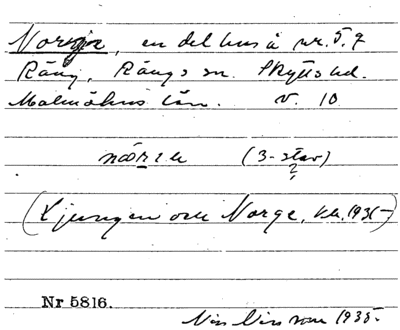 Norge, en del hus å nr. 5, 9
Räng, Rängs sn. Skytts hd.
Malmöhus län. v. 10
(3-stav)
?
(Ljungen och Norge, kk. 1935-)
Nr 5816.
Nils Nilsson 1935.